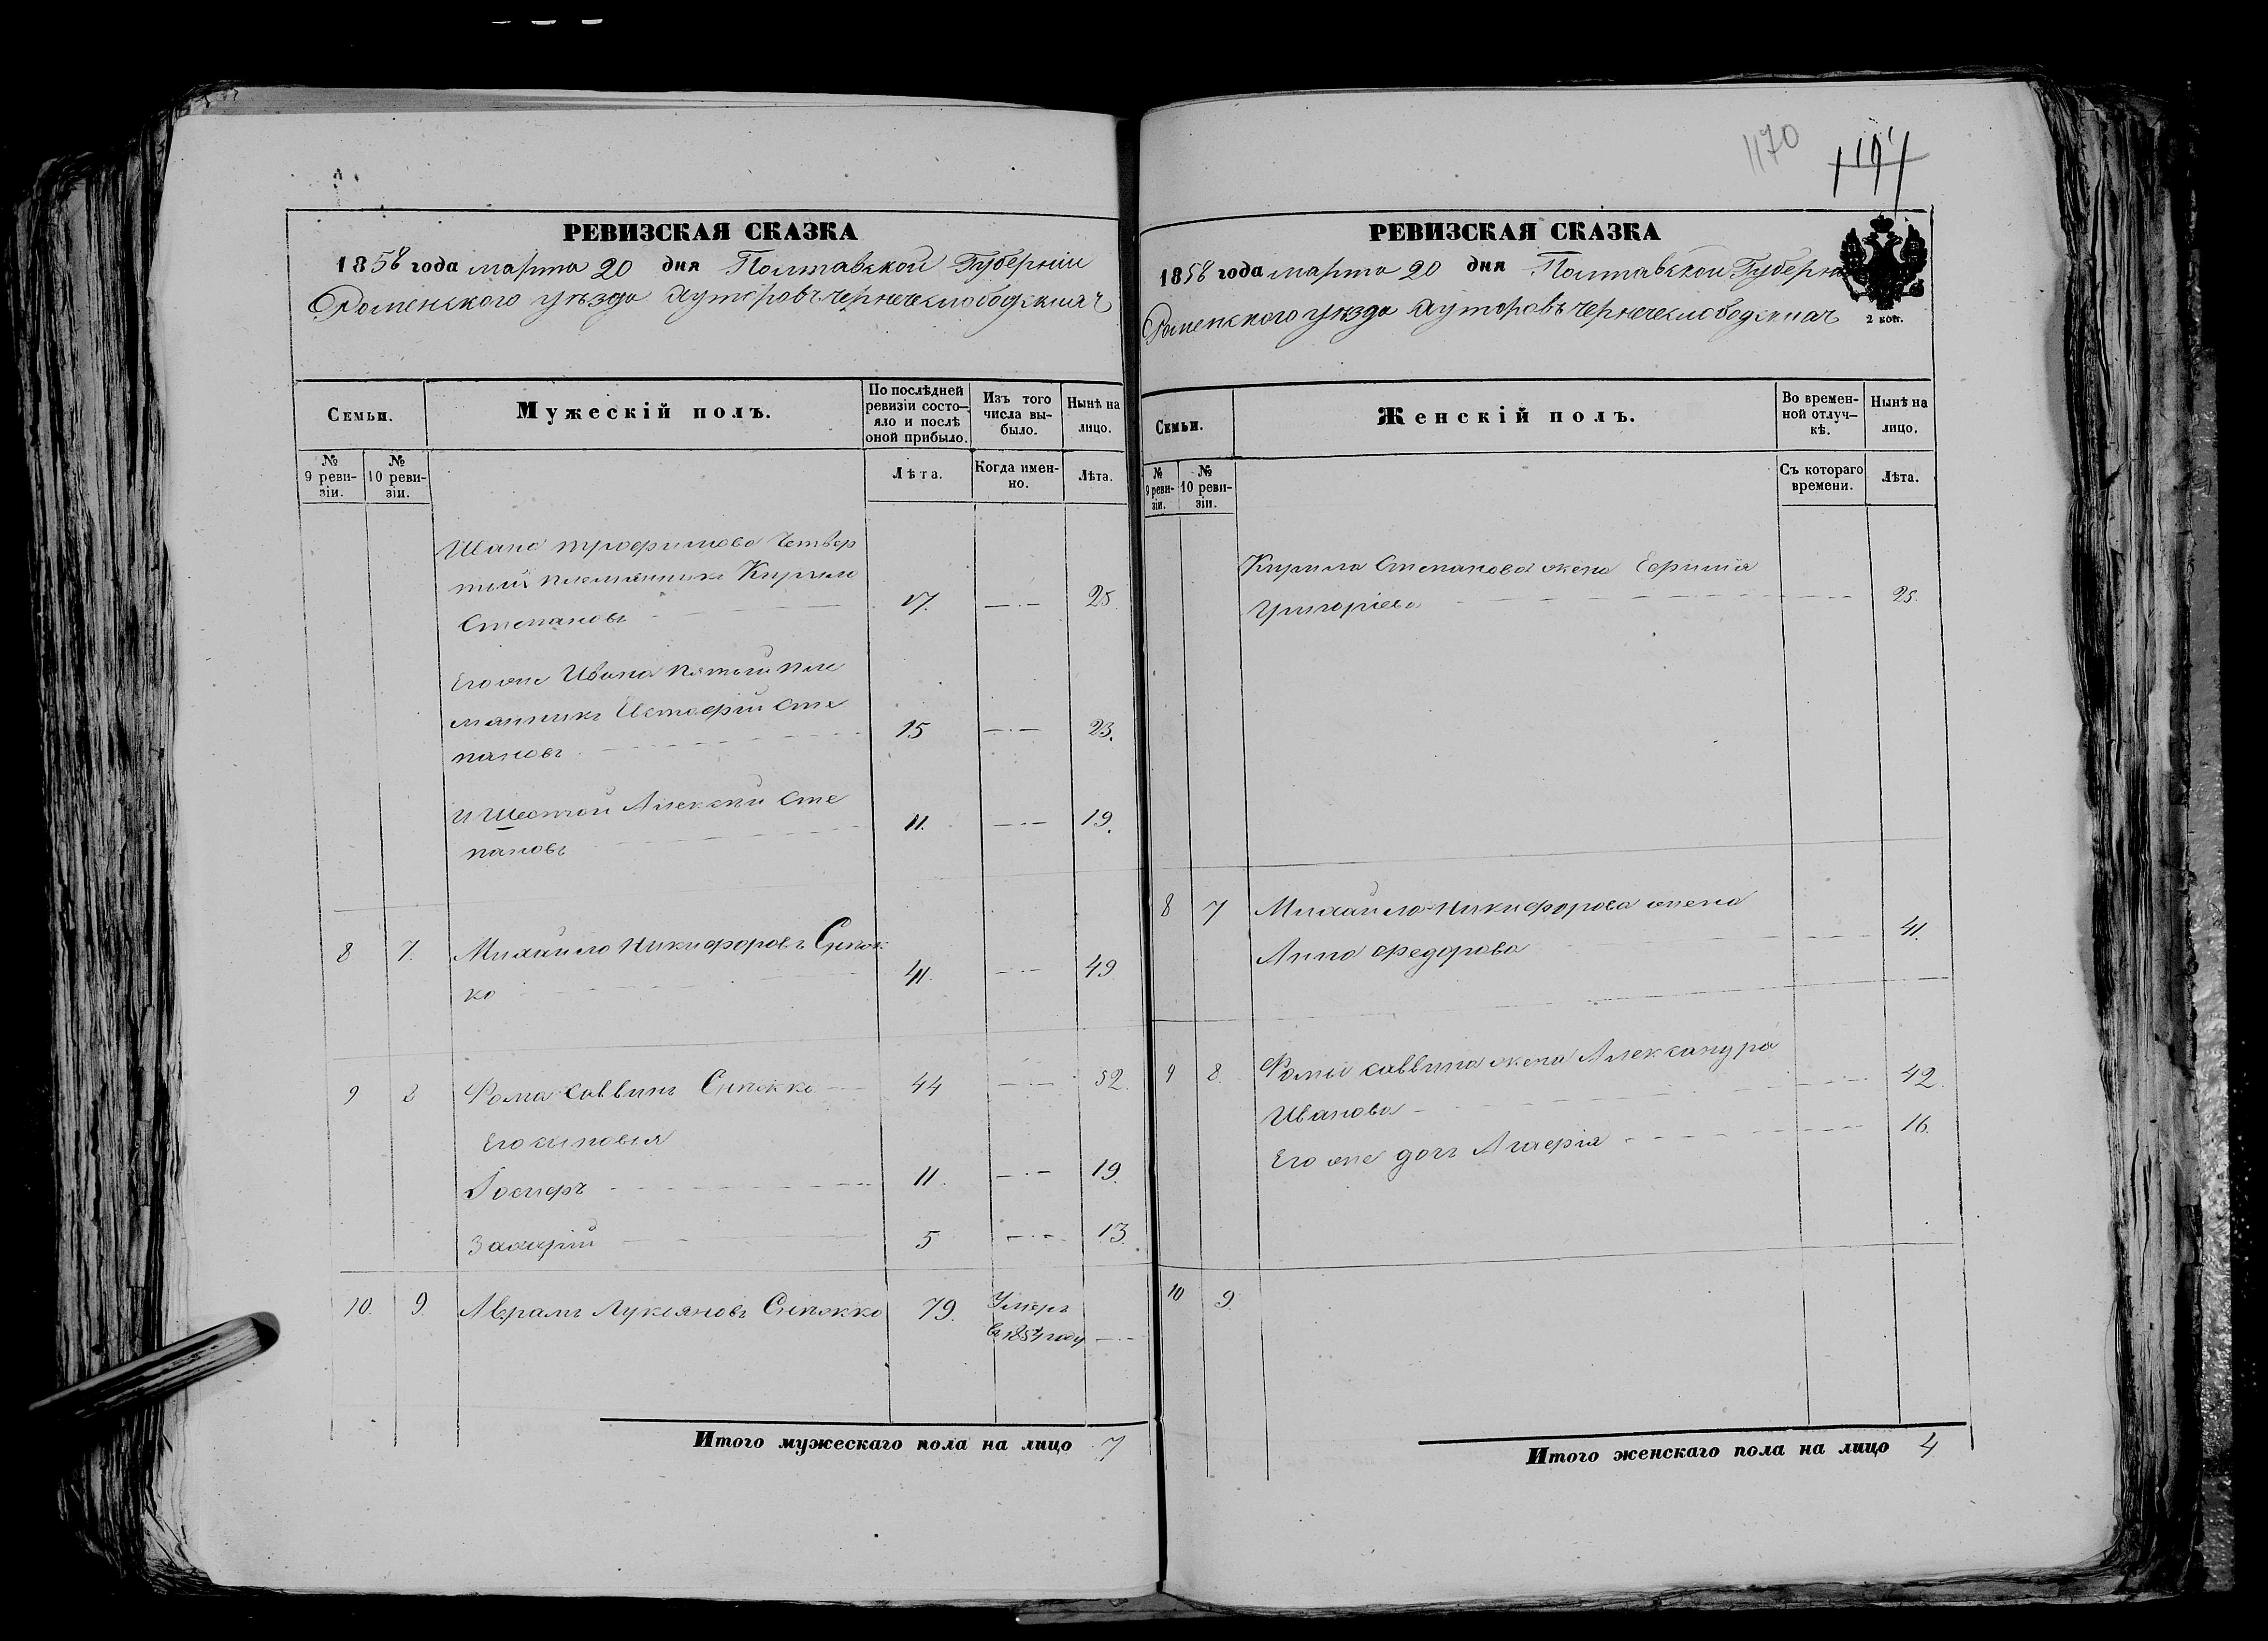 1170
РЕВИЗСКАЯ СКАЗКА
1858 года марта 20 дня Полтавской Губерніи
Роменского уѣзда Хуторовъ Чернечеслободскихъ
Семьи.
Мужескій полъ.
По послѣдней ревизіи состо—яло и послѣ оной прибыло.
Изъ того числа вы-было.
Нынѣ на лицо.
№ 9 реви-зіи.
№ 10 реви-зіи.
Лѣта.
Когда имен-но.
Лѣта.
Ивана Трофимова Четвер
тый племянникъ Кирило
Степановъ 17. 25.
Его же Ивана пятый пле
мянникъ Евстафій Сте
пановъ 15 23.
И Шестой Алексѣй Сте
пановъ 11. 19.
8 7. Михайло Никифоровъ
ко 41. 49
9 8 Фома Саввинъ 44 52.
Его сыновья
Іосифъ 11. 19.
Захарій 5 13.
10. 9. Аврамъ Лукьяновъ 79. Умеръ
въ 1854 году
Итого мужескаго пола на лицо 7
РЕВИЗСКАЯ СКАЗКА
1858 года марта 20 дня Полтавской Губерн
Роменского уѣзда Хуторовъ Чернечеслободскихъ
2 коп.
Семьи.
Женскій полъ.
Во времен-ной отлуч—кѣ.
Нынѣ на лицо.
№ 9 реви-зіи.
№ 10 реви-зіи.
Съ котораго времени.
Лѣта.
Кирила Степанова жена Ефимія
Григоріева 25.
8 7 Михайло Никифорова жена
Анна Федорова 41.
9 8. Фомы Саввина жена Александра
Иванова 42.
Его же дочь 16.
10 9.
Итого женскаго пола на лицо 4